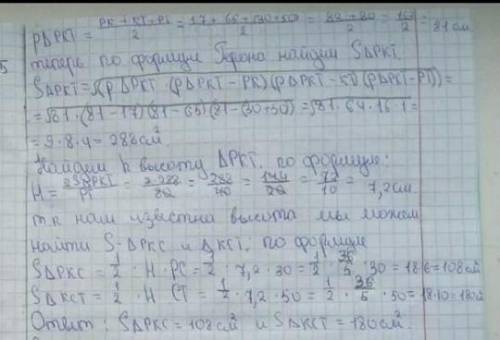 PΔPKT = (PK + KT + PT)/2 = (17 + 65 + 30 + 50)/2 = (82 + 80)/2 = 162/2 = 81 см
теперь по формуле Герона найдем SΔPKT.
SΔPKT = √(pΔPKT · (pΔPKT − PK)(pΔPKT − KT)(pΔPKT − PT)) =
= √81 · (81 − 17)(81 − 65)(81 − (30 + 50)) = √81 · 64 · 16 · 1 =
= 9 · 8 · 4 = 288 см²
Найдем h высоту ΔPKT. по формуле:
H = 2SΔPKT/PT = 2·288/80 = 288/40 = 144/20 = 72/10 = 7,2 см
т.к нам известна высота мы можем
найти S-ΔPKC и ΔKCT. по формуле
SΔPKC = 1/2 · H · PC = 1/2 · 7,2 · 30 = 1/2 · 36/5 · 30 = 18·6 = 108 см²
SΔKCT = 1/2 · H CT = 1/2 · 7,2 · 50 = 1/2 · 36/5 · 50 = 18·10 = 180
Ответ: SΔPKC = 108 см² и SΔKCT = 180 см².